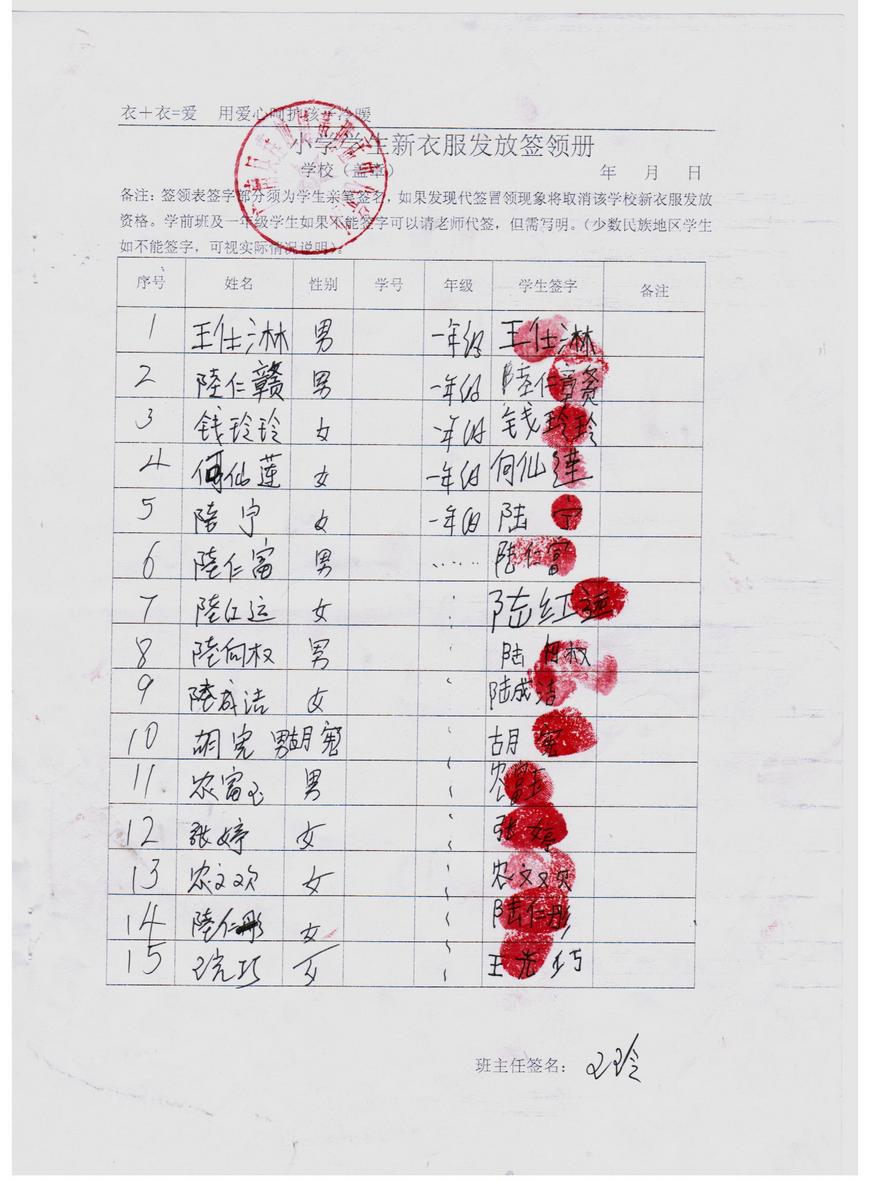 衣+衣=爱 用爱心呵护孩子冷暖
小学学生新衣服发放签领册
学校（盖章） 年 月 日
备注：签领表签字部分须为学生亲笔签名，如果发现代签冒领现象将取消该学校新衣服发放
资格。学前班及一年级学生如果不能签字可以请老师代签，但需写明。（少数民族地区学生
如不能签字，可视实际情况说明）。
序号 姓名 性别 学号 年级 学生签字 备注
1 王仕淋 男 一年级 王仕淋
2 陸仁赣 男 一年级 陸仁赣
3 钱玲玲 女 一年级 钱玲玲
4 何仙莲 女 一年级 何仙莲
5 陸宁 女 一年级 陆宁
6 陸仁富 男 …… 陸仁富
7 陸红运 女 陆红运
8 陸向权 男 陆向权
9 陸成洁 女 陆成洁
10 胡宪 男 胡宪 胡宪
11 农富玉 男 农富玉
12 张婷 女 张婷
13 农文欢 女 农文欢
14 陸仁彤 女 陆仁彤
15 女 王光巧
班主任签名：王玲